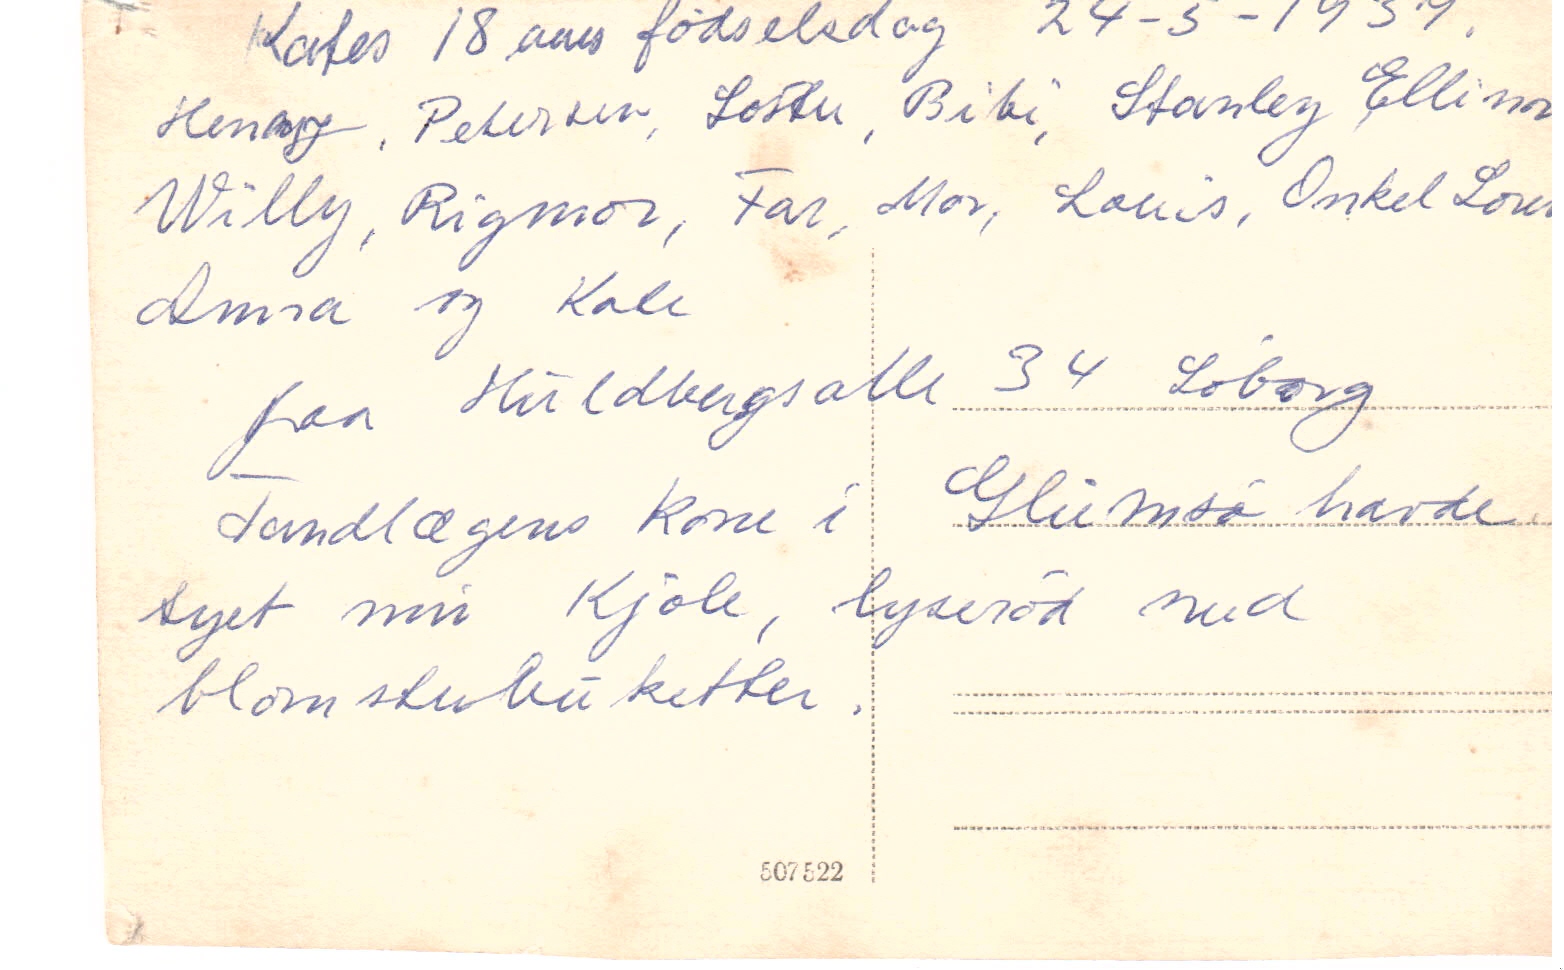 Kates 18 aars födselsdag 24-5-1937.
Henny, Petersen, Lotte, Bibi, Stanley, Ellinor
Willy, Rigmor, Far, Mor, Louis, Onkel
Anna og Kate
fra Huldbergsalle 34 Söborg
Tandlægens kone i Glümsö havde
syet min Kjole, lyseröd med
blomsterbüketter.
507522